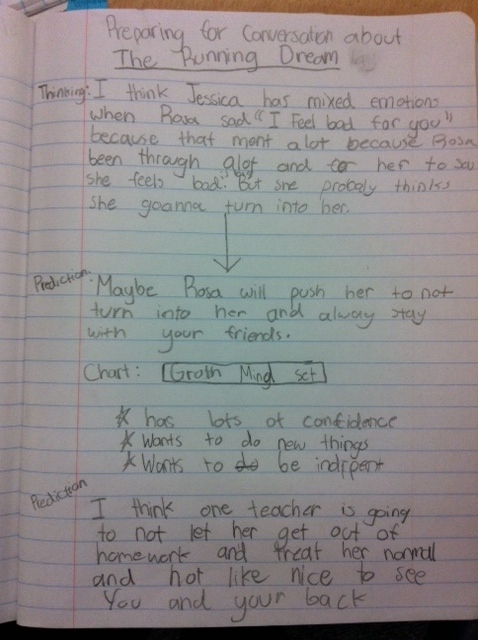 Preparing for Conversation about
The Running Dream
Thinking: I think Jessica has mixed emotions
when Rosa sad "I feel bad for you"
because that ment alot because Rosa
been through alot and for her to say
she feels bad. But she probely thinks
she goanna turn into her.
Prediction: Maybe Rosa will push her to not
turn into her and alway stay
with your friends.
Chart: Groth Mind set
* has lots of confidence
* Wants to do new things
* Wants to do be indipent
Prediction
I think one teacher is going
to not let her get out of
homework and treat her normal
and not like nice to see
You and your back